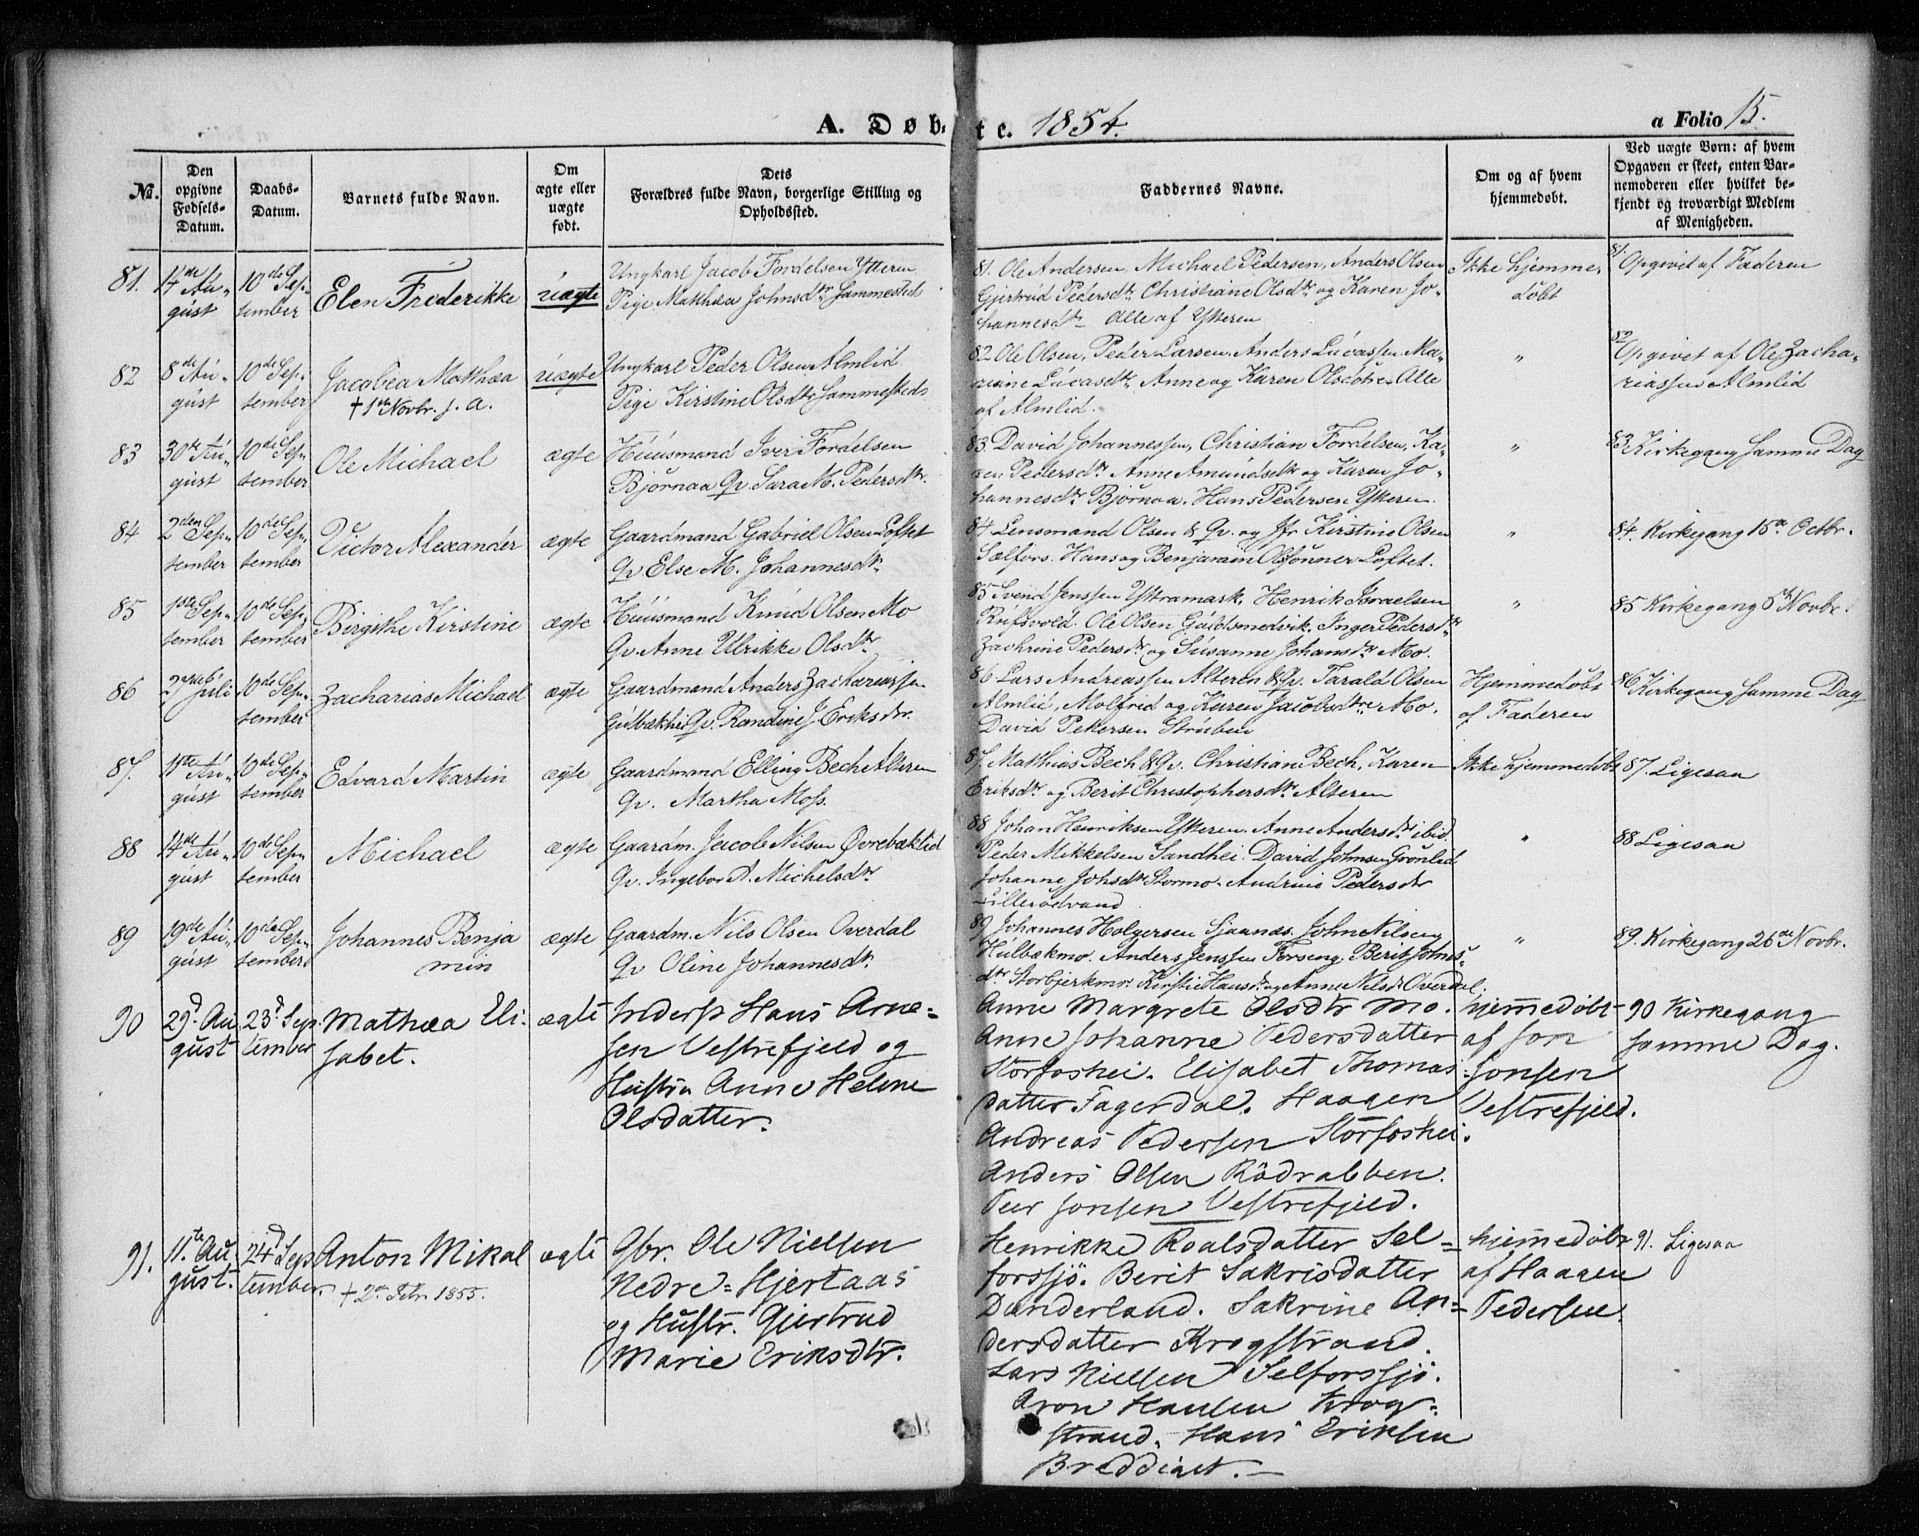 A. Døbte. 1854.
a Folio 15.
№.
Den opgivne Fødsels-Datum.
Daabs-Datum.
Barnets fulde Navn.
Om ægte eller uægte født.
Dets Forældres fulde Navn, borgerlige Stilling og Opholdssted.
Faddernes Navne.
Om og af hvem hjemmedøbt.
Ved uægte Børn: af hvem Opgaven er skeet, enten Barnemoderen eller hvilket bekjendt og troværdigt Medlem af Menigheden.
81. 14de August 10de September Elen Frederikke uægte
Ungkarl Jacob Fordelsen Ytteren
Pige Matthea Johnsdtr Sammesteds
81. Ole Andersen, Michael Pedersen, Anders Olsen
Gjertrud Pedersdtr. Christiane Olsdtr og Karen Jo-
hannesdtr Alle af Ytteren
Ikke hjemmedøbt
81. Opgivet af Faderen
82 8de August 10de September Jacobea Mathea uægte
† 1ste Novbr. s. A.
Ungkarl Peder Olsen Almlid
Pige Kirstine Olsdtr Sammesteds
82 Ole Olsen, Peder Larsen, Anders Lucassen, Ma-
riane Lucasdtr. Anne og Karen Olsdøtre Alle
af Almlid.
"
82 Opgivet af Ole Zacha-
riassen Almlid
83 30te August 10de September Ole Michael ægte
Huusmand Iver Fordelsen
Bjørnaa Qv. Sara M. Pedersdtr.
83. David Johannessen, Christian Fordelsen, Ka-
ren Pedersdtr Anne Amundsdtr og Karen Jo-
hannesdtr Bjørnaa. Hans Pedersen Ytteren.
"
83. Kirkegang samme Dag
84 2den September 10de September Victor Alexander ægte
Gaardmand Gabriel Olsen Loftet
Qv Else M. Johannesdtr
84 Lensmand Olsen & Qv. og Jfr Kirstine Olsen
Selfors. Hans og Benjamin Olsønner Loftet.
"
84. Kirkegang 15de Octbr.
85 1ste September 10de September Birgithe Kirstine ægte
Huusmand Knud Olsen Mo
Qv. Anne Ulrikke Olsdtr
85 Svend Jenssen Yttramark, Henrik Israelsen
Rufsvold. Ole Olsen Guldsmedvik. Inger Pedersdtr
Zachrine Pedersdtr og Susanne Johansdtr Mo.
"
85 Kirkegang 5te Novbr.
86 27de Juli 10de September Zacharias Michael ægte
Gaardmand Anders Zachariassen
Qv. Randine J. Eriksdtr.
86 Lars Andreassen Alteren & Qv. Tarald Olsen
Almlid, Molfrid og Karen Jacobsdtre Mo.
David Petersen Strüben
Hjemmedøbt
af Faderen
86 Kirkegang samme Dag
87. 11te August 10de September Edvard Martin ægte
Gaardmand Elling Bech Alteren
Qv. Martha Moss.
87 Matthias Bech & Qv. Christian Bech, Karen
Eriksdtr og Berit Christophersdtr Alteren
Ikke hjemmedøbt
87. Ligesaa
88 14de August 10de September Michael ægte
Gaardm. Jacob Nilsen Øvrebæklid
Qv. Ingebor A. Michelsdtr
88 Johan Henriksen Ytteren. Anne Andersdtr ibid
Peder Mikkelsen Sandhei. David Johnsen Grønlid
Johanne Johsdtr Stormo. Andrine Pedersdtr
Lillerødvand
"
88 Ligesaa
89 19de August 10de September Johannes Benja
min ægte
Gaardm. Nils Olsen Overdal
Qv Oline Johannesdtr.
89 Johannes Holgersen Sjaanæs. John Nilsen
Hulbækmo. Anders Jenssen Forseng. Berit Johns-
dtr. Storbjerkmo. Kirstie Hansdtr og Anne Nilsdtr Overdal.
"
89. Kirkegang 26de Novbr.
90 29d. August 23d September Mathæa Eli-
sabet. ægte
Inderst Hans Arne-
sen Vestrefjeld og
Hustru Anne Helene
Olsdatter.
Anne Margrete Olsdtr Mo.
Anne Johanne Pedersdatter
Storfoshei. Elisabet Thomas-
datter Fagerdal. Haagen
Andreas Pedersen Storfoshei.
Anders Olsen Rödrabben.
Peer Jonsen Vestrefjeld.
hjemmedøbt
af Jon
Jonsen
Vestrefjeld.
90 Kirkegang
samme Dag.
91. 11te August. 24d September. Anton Mikal ægte
† 2den Febr. 1855.
Gbr. Ole Nielsen
Nedre-Hjertaas
og Hustr. Gjertrud
Marie Eriksdtr.
Henrikke Roalsdatter Sel-
forssjö. Berit Sakrisdatter
Dunderland. Sakrine An-
dersdatter Krogstrand.
Lars Nielsen Selforssjö.
Aron Hansen Krog-
strand. Hans Eriksen
Breddiget.
hjemmedøbt
af Haagen
Pedersen.
91. Ligesaa